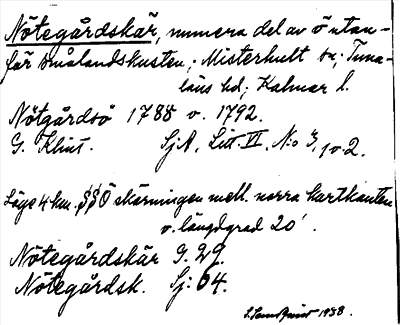 Nötegårdskär, numera del av ö utan-
för smålandskusten; Misterhult sn; Tuna-
läns hd; Kalmar l.
Nötgårdsö 1788 v. 1792.
G. Klint. SjA, Litt. VI, N:o 3, 1 o 2.
Läge 4 km. SSÖ skärningen mell. norra kartkanten
o. längdgrad 20'.
Nötegårdskär G. 29.
Nötegårdsk. Sj: 64.
1938.